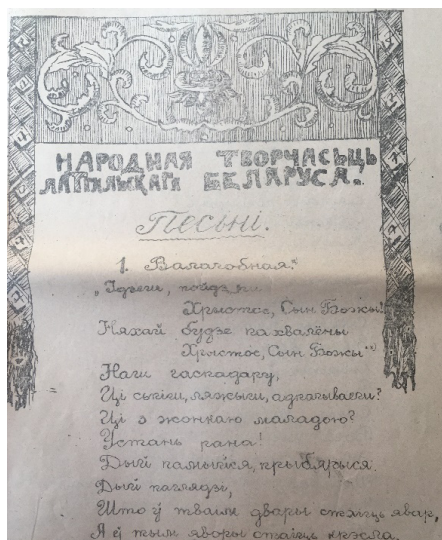 НАРОДНАЯ ТВОРЧАСЬЦЬ
ЛАТГАЛЬСКАГА БЕЛАРУСА.
Песьні.
1. Валачобная.
Хрыстос, Сын Божы!
Няхай будзе пахвалёны
Хрыстос, Сын Божы"
Наш гаспадару,
Ці сьпіш, ляжыш, адпачываеш?
Ці з жонкаю маладою?
Устань рана!
Дый памыйся, прыбярыся.
Дый паглядзі,
Што ў тваим двары стаіць явар,
А ў тым явары стаіць